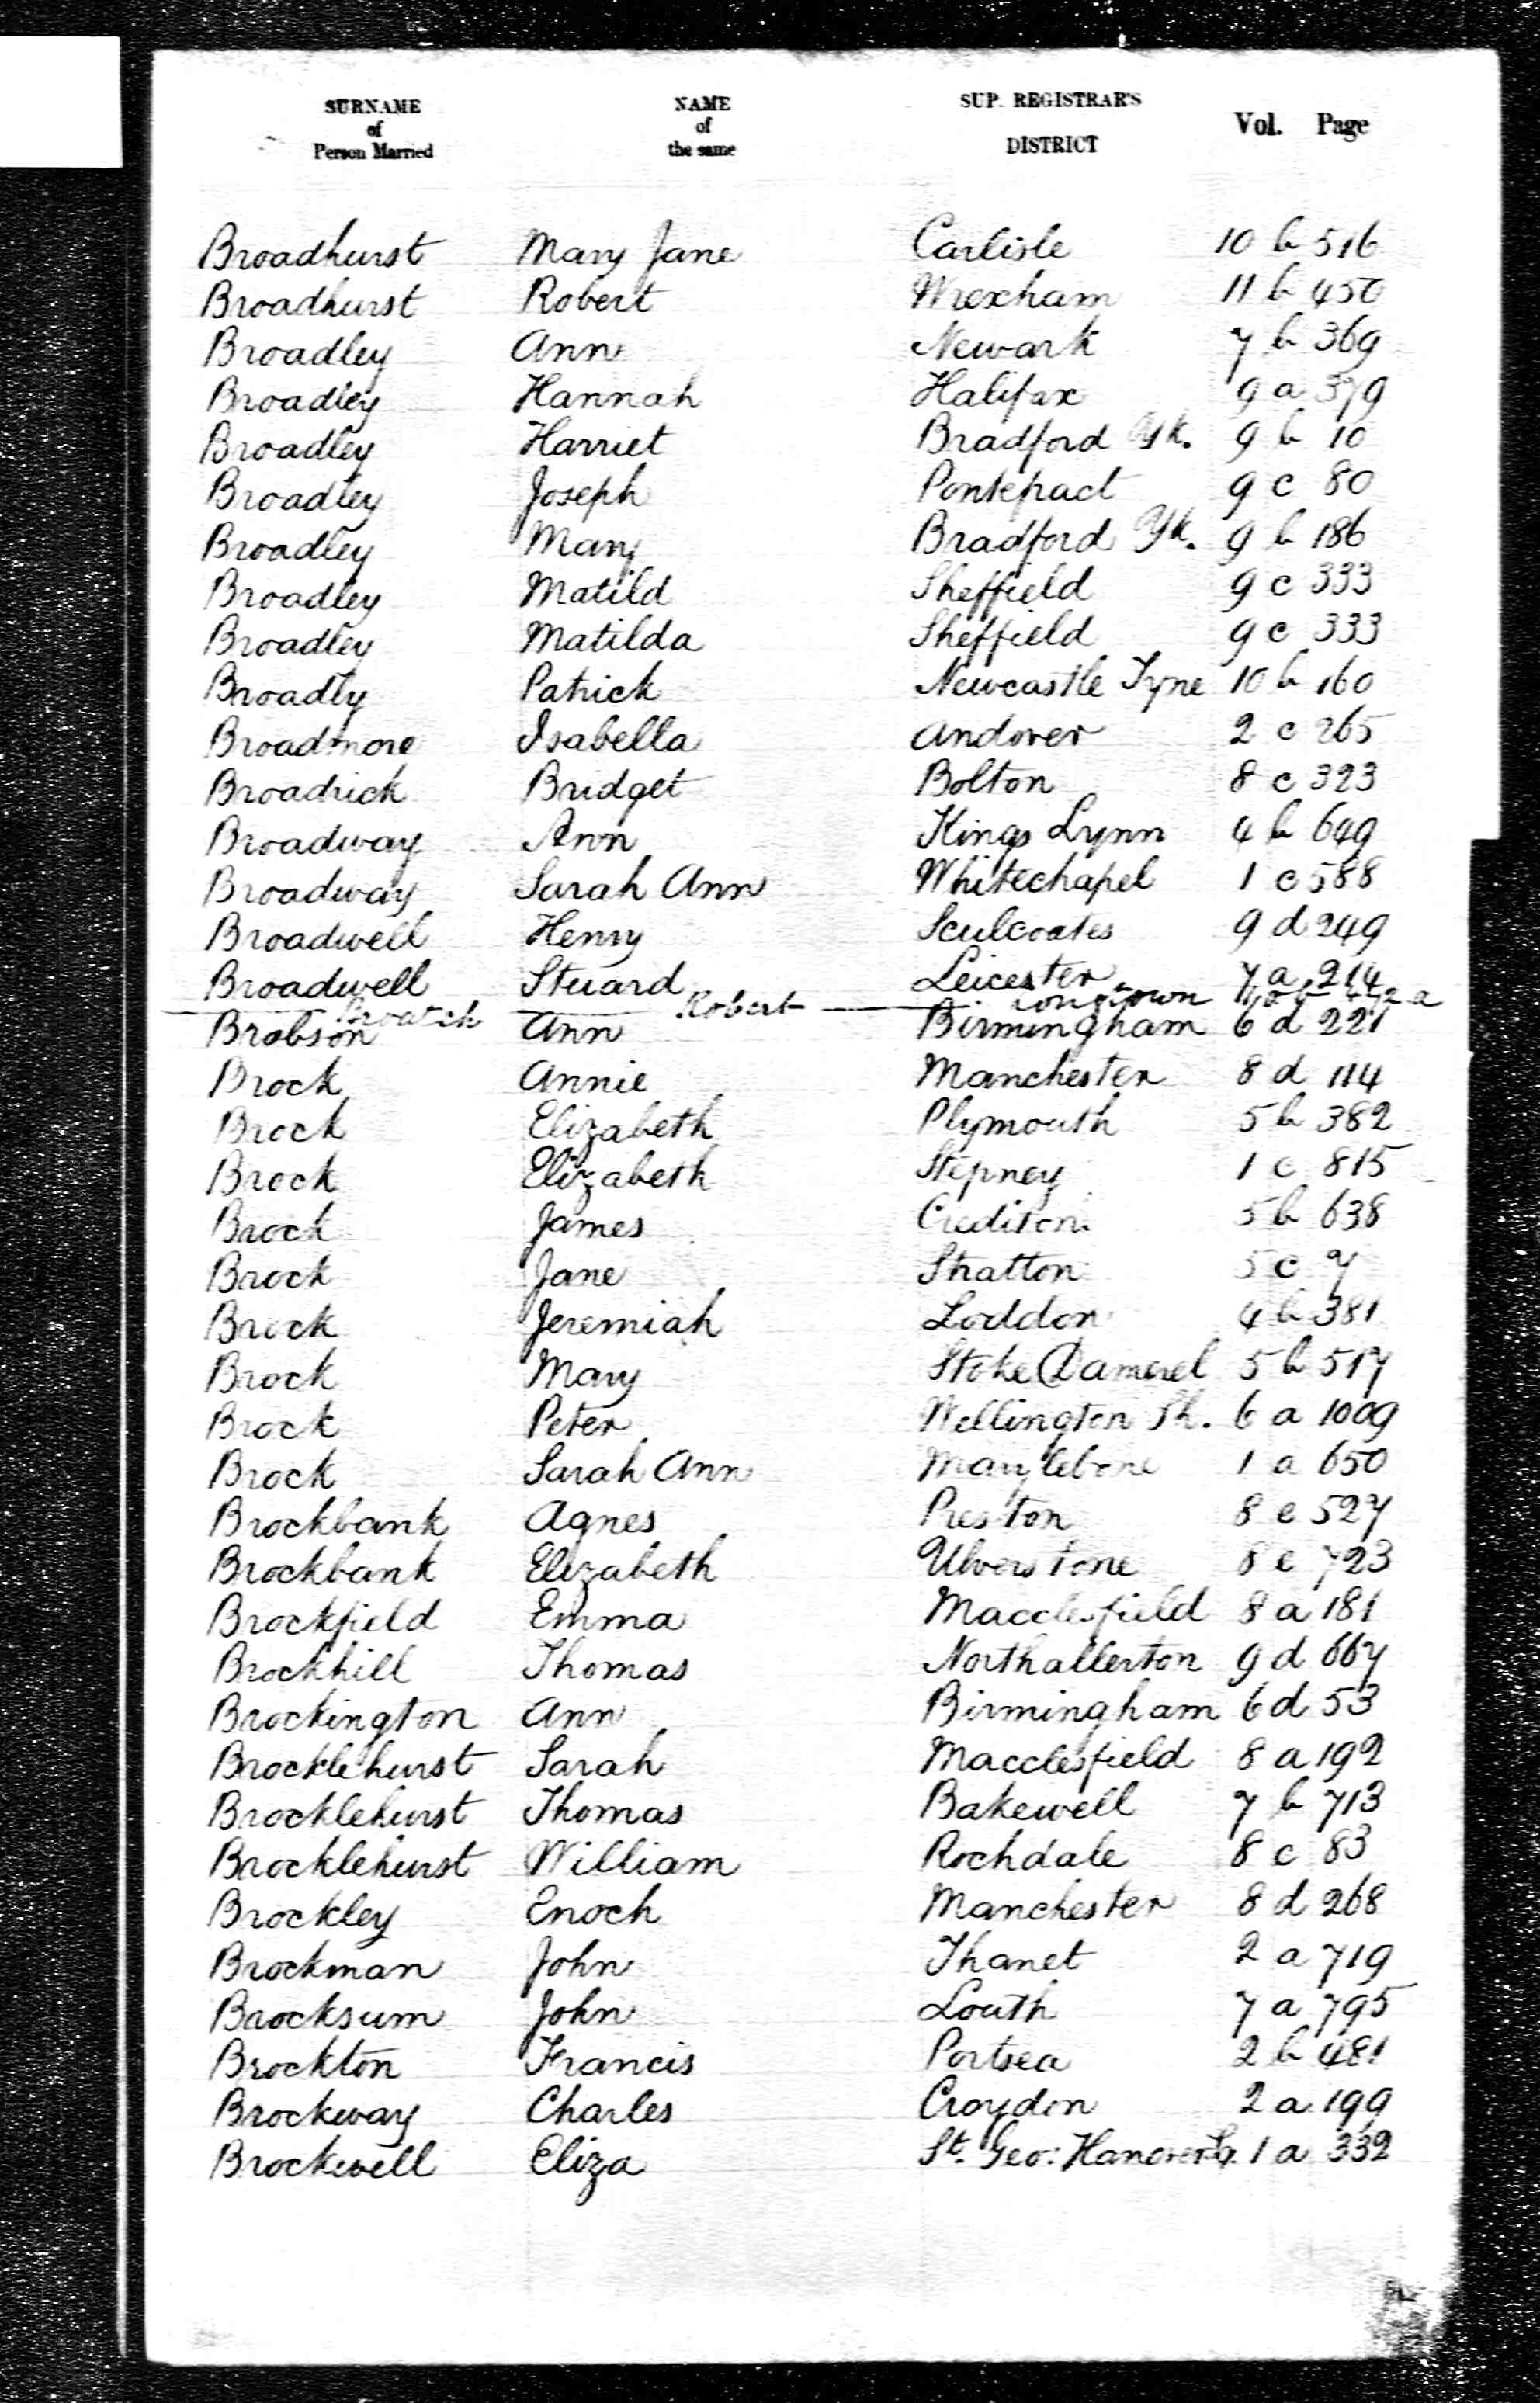 SURNAME of Person Married NAME of the same SUP. REGISTRAR'S DISTRICT Vol. Page
Broadhurst Mary Jane Carlisle 10 b 516
Broadhurst Robert Wrexham 11 b 450
Broadley Ann Newark 7 b 369
Broadley Hannah Halifax 9 a 379
Broadley Harriet Bradford Yk. 9 b 10
Broadley Joseph Pontefract 9 c 80
Broadley Mary Bradford Yk. 9 b 186
Broadley Matild Sheffield 9 c 333
Broadley Matilda Sheffield 9 c 333
Broadly Patrick Newcastle Tyne 10 b 160
Broadmore Isabella Andover 2 c 265
Broadrick Bridget Bolton 8 c 323
Broadway Ann Kings Lynn 4 b 649
Broadway Sarah Ann Whitechapel 1 c 588
Broadwell Henry Sculcoates 9 d 249
Broadwell Steuard Leicester 7 a 214
Broatch Robert Longtown
Brobson Ann Birmingham 6 d 221
Brock Annie Manchester 8 d 114
Brock Elizabeth Plymouth 5 b 382
Brock Elizabeth Stepney 1 c 815
Brock James Crediton 5 b 638
Brock Jane Stratton 5 c 7
Brock Jeremiah Loddon 4 b 381
Brock Mary Stoke Damerel 5 b 517
Brock Peter Wellington Sh. 6 a 1009
Brock Sarah Ann Marylebone 1 a 650
Brockbank Agnes Preston 8 e 527
Brockbank Elizabeth Ulverstone 8 e 723
Brockfield Emma Macclesfield 8 a 181
Brockhill Thomas Northallerton 9 d 667
Brockington Ann Birmingham 6 d 53
Brocklehurst Sarah Macclesfield 8 a 192
Brocklehurst Thomas Bakewell 7 b 713
Brocklehurst William Rochdale 8 c 83
Brockley Enoch Manchester 8 d 268
Brockman John Thanet 2 a 719
Brocksum John Louth 7 a 795
Brockton Francis Portsea 2 b 481
Brockway Charles Croydon 2 a 199
Brockwell Eliza St. Geo: Hanover Sq. 1 a 332